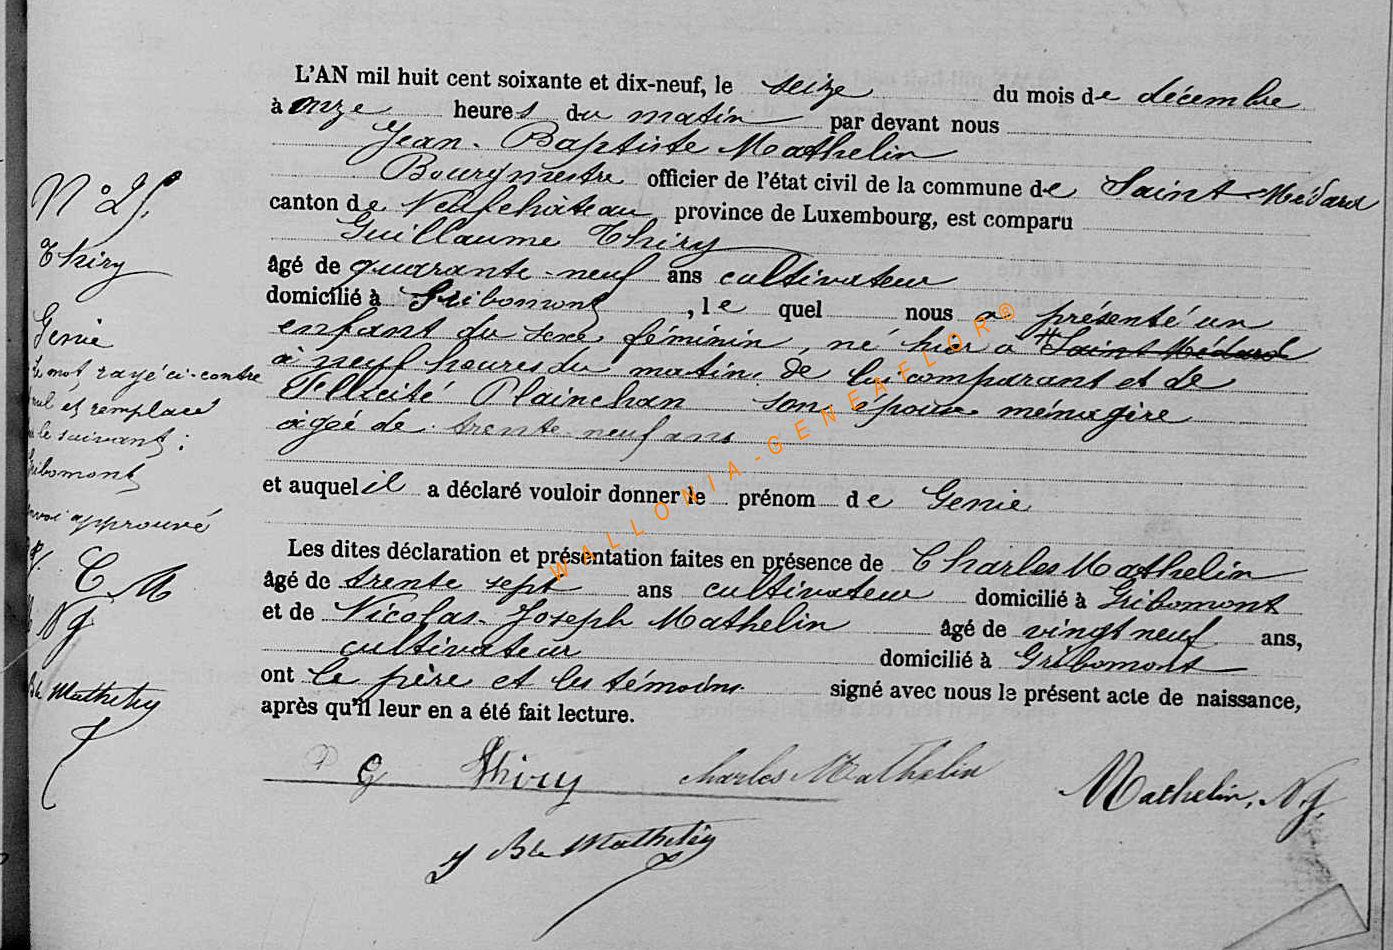 L'AN mil huit cent soixante et dix-neuf, le seize du mois de décembre
à onze heures du matin par devant nous
Jean-Baptiste Mathelin
Bourgmestre officier de l'état civil de la commune de Saint-Médard
canton de Neufchâteau, province de Luxembourg, est comparu
Guillaume Thiry
âgé de quarante-neuf ans cultivateur
domicilié à Gribomont, le quel nous a présenté un
enfant du sexe féminin, né hier à Saint-Médard
à neuf heures du matin, de lui comparant et de
Félicité Plainchan son épouse ménagère
âgée de trente-neuf ans
et auquel il a déclaré vouloir donner le prénom de Génie
Les dites déclaration et présentation faites en présence de Charles Mathelin
âgé de trente sept ans cultivateur domicilié à Gribomont
et de Nicolas-Joseph Mathelin âgé de vingt neuf ans,
cultivateur domicilié à Gribomont
ont le père et les témoins signé avec nous le présent acte de naissance,
après qu'il leur en a été fait lecture.
G Thiry Charles Mathelin Mathelin, N.J.
J Bte Mathelin
N° 25.
Thiry
Génie
Le mot rayé ci-contre
nul et remplacé
le suivant :
Gribomont
approuvé
C. M
N J
Bte Mathelin
WALLONIA-GENEAFLOR©